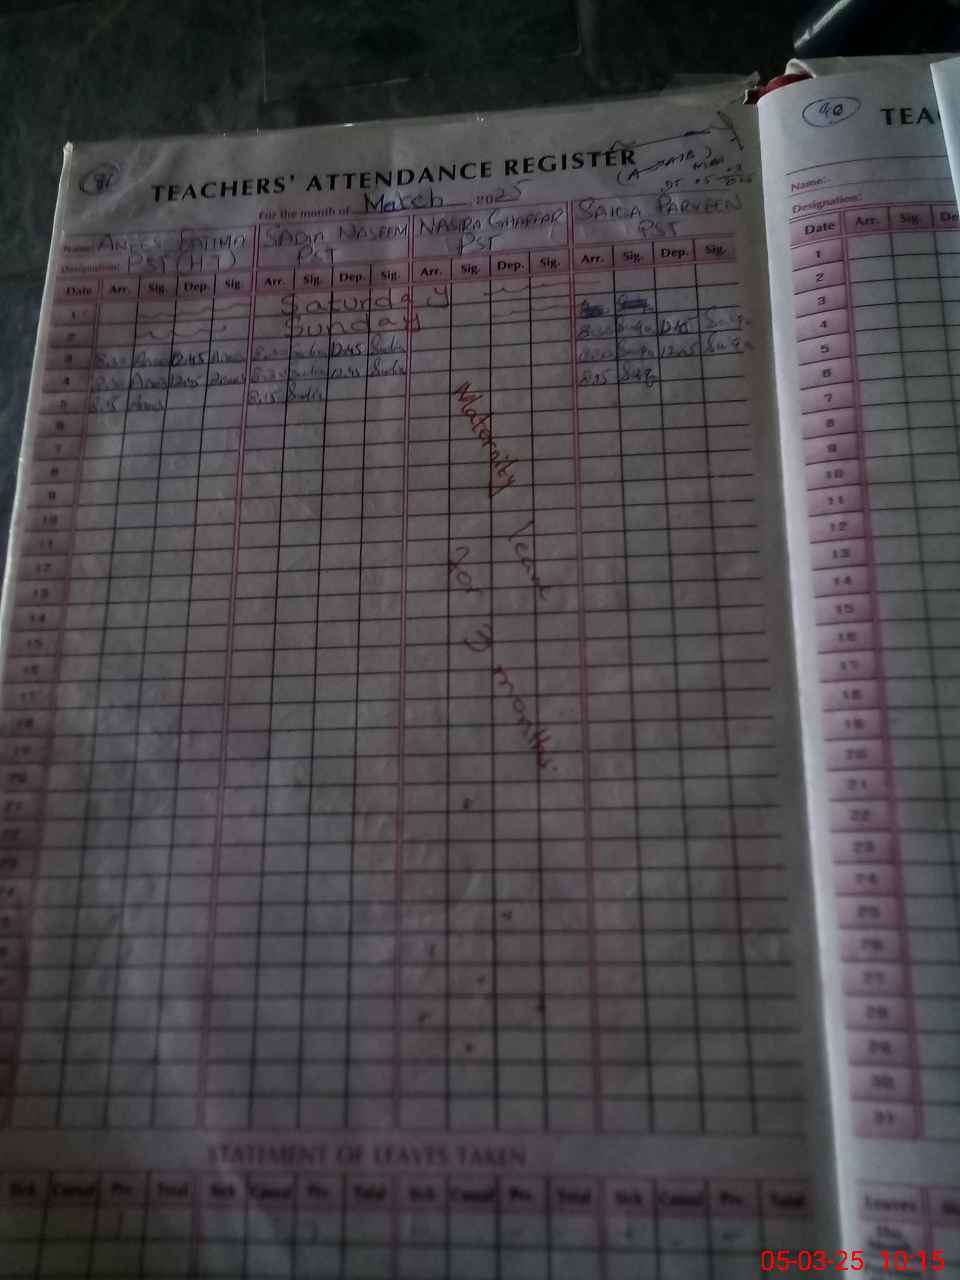 81
TEACHERS' ATTENDANCE REGISTER
For the month of March 2025
Name: ANEES FATIMA SADIA NASEEM NASIRA GHAFFAR SAIQA PARVEEN
Designation: PST (H.T) PST PST PST
Date Arr. Sig. Dep. Sig. Arr. Sig. Dep. Sig. Arr. Sig. Dep. Sig. Arr. Sig. Dep. Sig.
1 Saturday
2 Sunday
3 8:30 Anees 12:45 Anees 8:30 Sadia 12:45 Sadia 8:30 Saiqa 12:45 Saiqa
4 8:30 Anees 12:45 Anees 8:30 Sadia 12:45 Sadia 8:30 Saiqa 12:45 Saiqa
5 8:15 Anees 8:15 Sadia 8:15 Saiqa
6
7
8
9
10
11
12
13
14
15
16
17
18
19
20
21
22
23
Maternity
leave
for 3 months.
STATEMENT OF LEAVES TAKEN
Sick Casual Prv. Total Sick Casual Prv. Total Sick Casual Prv. Total Sick Casual Prv. Total
90
TEA
Name:
Designation:
Date Arr. Sig. De
1
2
3
4
5
6
7
8
9
10
11
12
13
14
15
16
17
18
19
20
21
22
23
24
25
26
27
28
29
30
31
Leaves
05-03-25 10:15